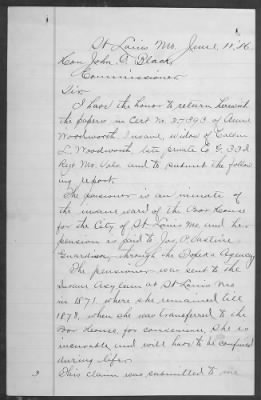 St Louis Mo. June 11, '86
Hon John C. Black,
Commissioner
Sir
I have the honor to return herewith
the papers in Cert No. 27393 of Anne
Woodworth, Insane, widow of
L. Woodworth, late private Co G, 33d
Regt Mo. Vols. and to submit the follow
ing report.
The pensioner is an inmate of
the insane ward of the Poor House
for the City of St Louis Mo and her
pension is paid to Jas. P.
Guardian, through the Topeka Agency
The pensioner was sent to the
Insane Asylum at St Louis Mo
in 1871. where she remained till
1878, when she was transferred to the
Poor House, for She is
incurable and will have to be confined
during life.
This claim was submitted to me